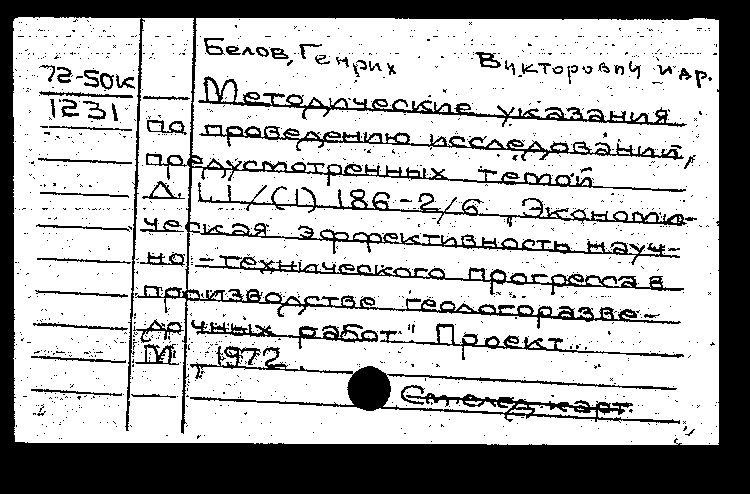 Белов, Генрих Викторович и др.
72-50к
1231
Методические указания
по проведению исследований,
предусмотренных темой
Л. I.I/(I) 186-2/6 „Экономи-
ческая эффективность науч-
но-технического прогресса в
производстве геологоразве-
дочных работ" Проект...
М., 1972.
См. след. карт.